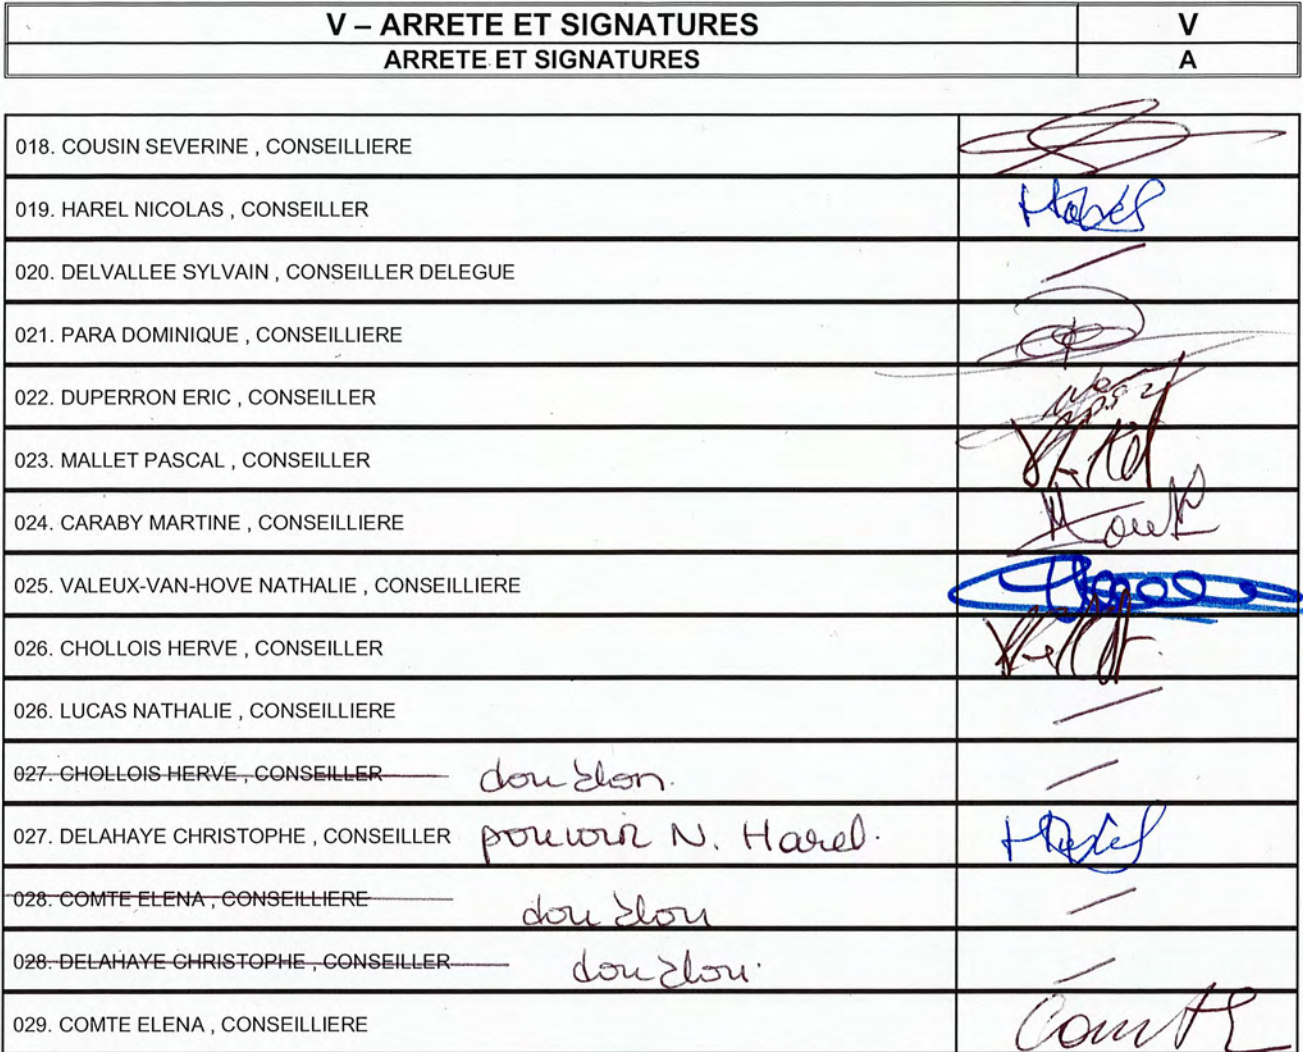 V – ARRETE ET SIGNATURES V
ARRETE ET SIGNATURES A
018. COUSIN SEVERINE , CONSEILLIERE
019. HAREL NICOLAS , CONSEILLER Harel
020. DELVALLEE SYLVAIN , CONSEILLER DELEGUE
021. PARA DOMINIQUE , CONSEILLIERE
022. DUPERRON ERIC , CONSEILLER
023. MALLET PASCAL , CONSEILLER
024. CARABY MARTINE , CONSEILLIERE
025. VALEUX-VAN-HOVE NATHALIE , CONSEILLIERE
026. CHOLLOIS HERVE , CONSEILLER
026. LUCAS NATHALIE , CONSEILLIERE
027. CHOLLOIS HERVE , CONSEILLER doublon.
027. DELAHAYE CHRISTOPHE , CONSEILLER pouvoir N. Harel. Harel
028. COMTE ELENA , CONSEILLIERE doublon
028. DELAHAYE CHRISTOPHE , CONSEILLER doublon.
029. COMTE ELENA , CONSEILLIERE Comte